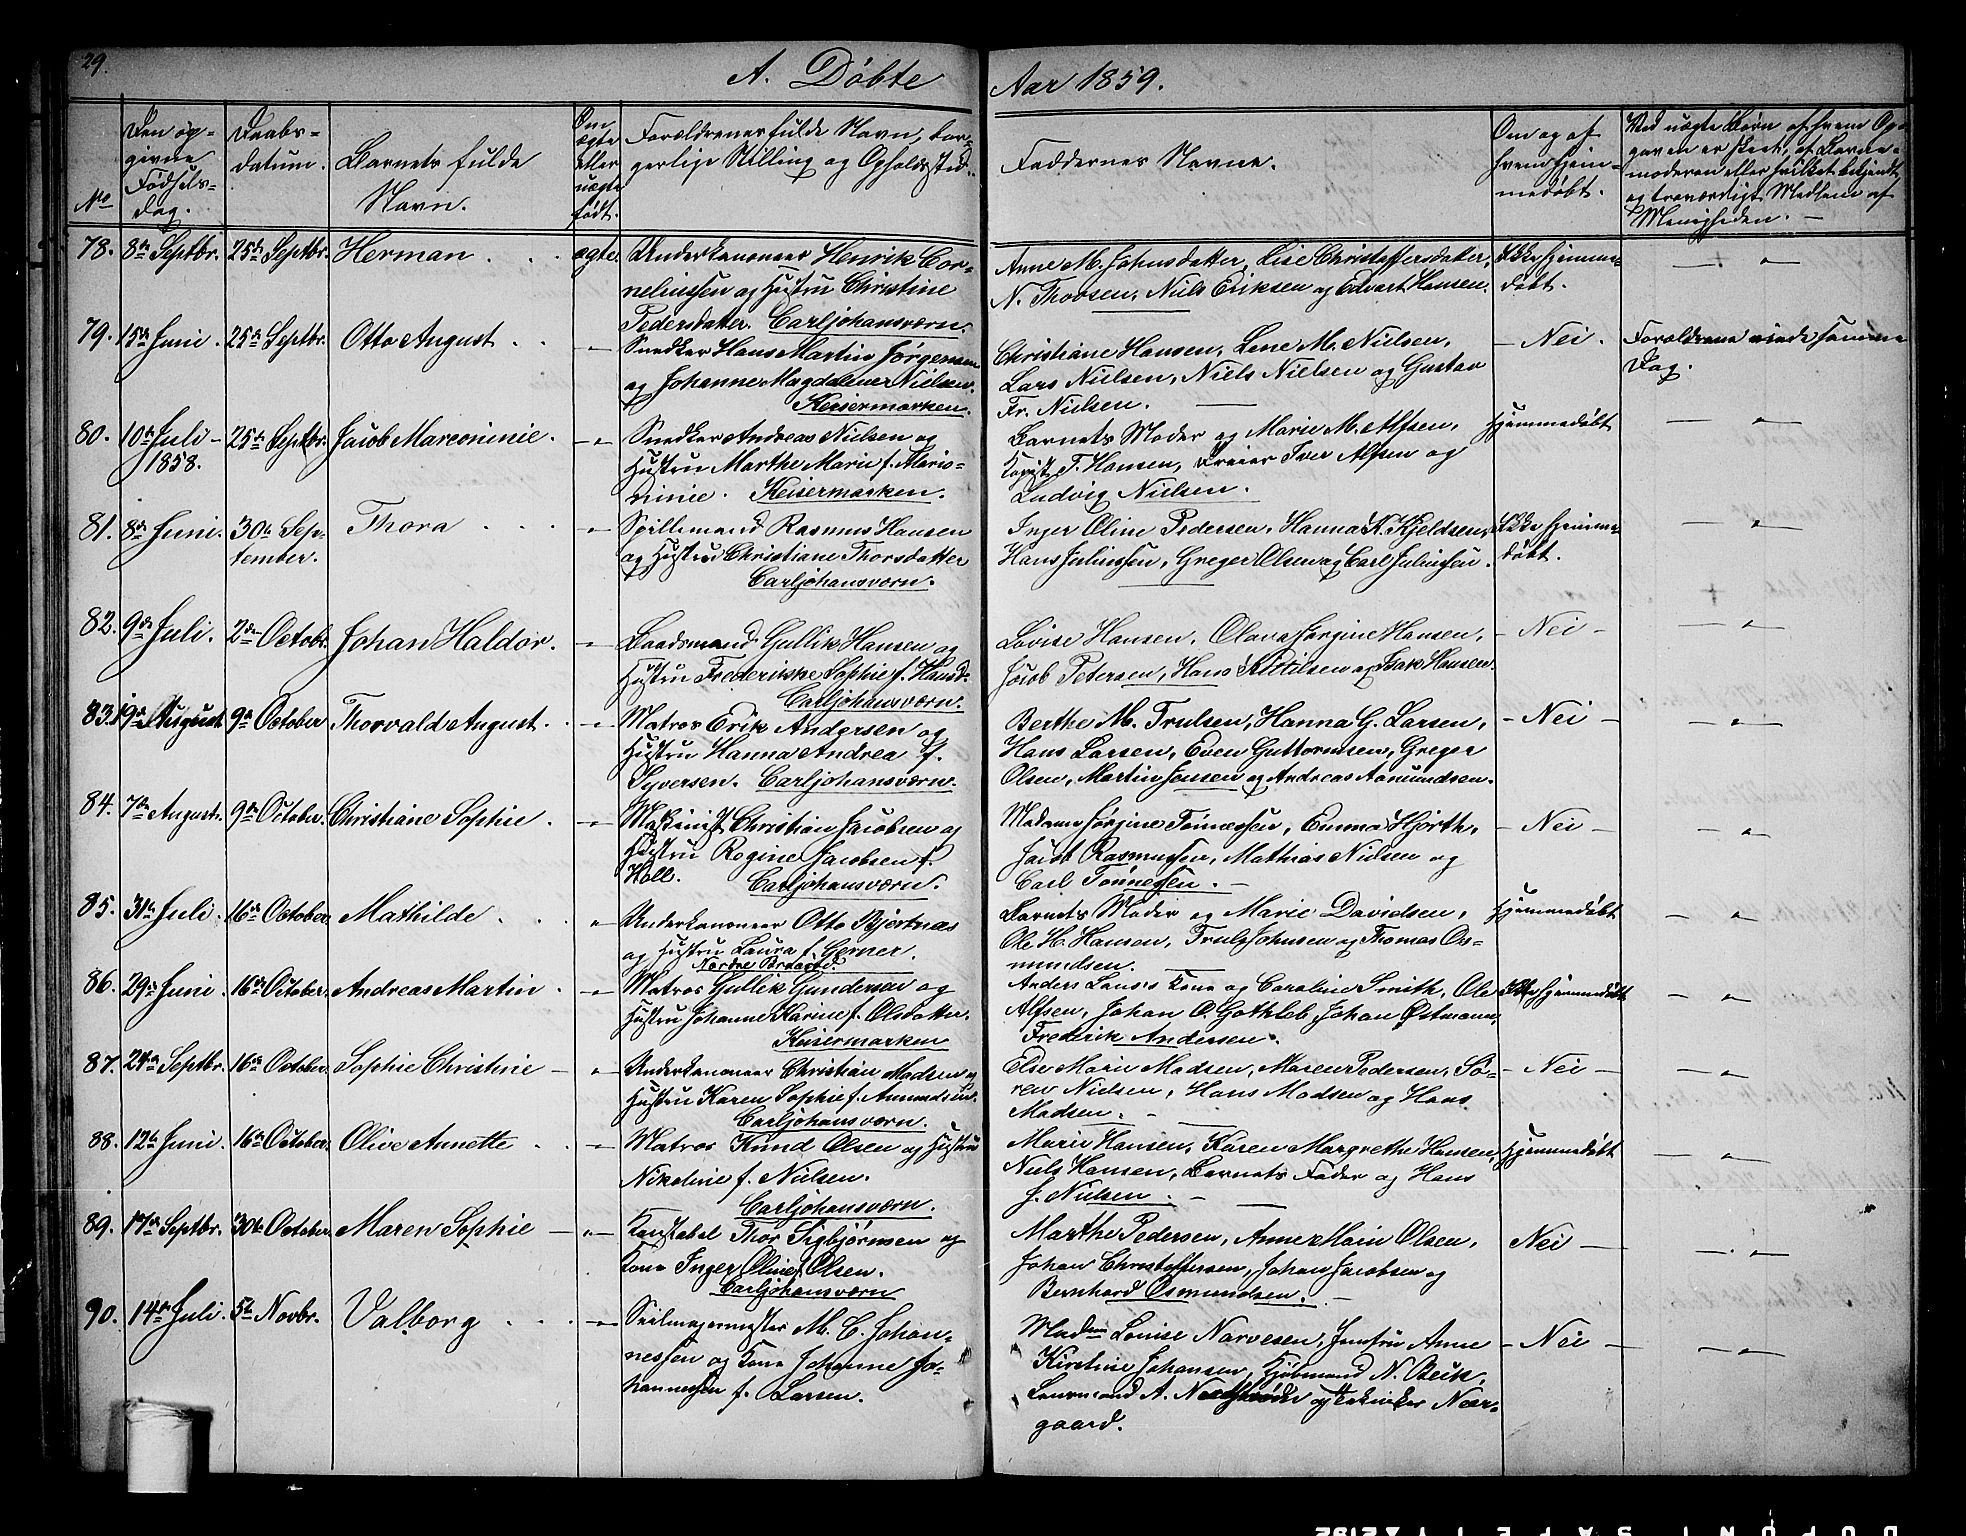 29.
A. Döbte
Aar 1859.
No
Den op-
givne
Födsels-
dag.
Daabs-
datum.
Barnets fulde
Navn.
Om
ægte
eller
uægte
födt.
Forældrenes fulde Navn, bor-
gerlige Stilling og Opholdssted.
Faddernes Navne.
Om og af
hvem hjem-
medöbt.
Ved uægte Börn af hvem Op-
gaven er skeet, af Barne-
moderen eller hvilket bekjendt
og troværdigt Medlem af
Menigheden. —
78. 8de Septbr. 25de Septbr. Herman . . . ægte.
Underkanoneer Henrik Cor-
neliussen og Hustru Christine
Pedersdatter. Carljohansværn.
Anne M. Johnsdatter, Lise Christoffersdatter,
N. Thovsen, Niels Eriksen og Edvart Hansen.
Ikke hjemme-
döbt.
79. 15de Juni. 25de Septbr. Otto August . . — " —
Snedker Hans Martin Jörgensen
og Johanne Magdalene Nielsen.
Keisermarken.
Christiane Hansen, Lene M. Nielsen,
Lars Nielsen, Niels Nielsen og Gustav
Fr. Nielsen.
— Nei.
Forældrene viede samme
Dag.
80. 10de Juli - 25de Septbr. Jacob Marconinie. — " —
1858.
Snedker Andreas Nielsen og
Hustru Marthe Marie f. Marco-
ninie. Keisermarken.
Barnets Moder og Marie M. Alfsen,
Kopist T. Hansen, Dreier Iver Alfsen og
Ludvig Nielsen.
Hjemmedöbt
81. 8de Juni. 30te Sep-
tember.
Thora . . . — " —
Spillemand Rasmus Hansen
og Hustru Christiane Thorsdatter
Carljohansværn.
Inger Oline Pedersen, Hanna N. Kjeldsen,
Hans Juliussen, Greger Olsen og Carl Juliussen.
Ikke hjemme-
döbt.
82. 9de Juli. 2den Octobr. Johan Haldor. — " —
Baadsmand Gullik Hansen og
Hustru Frederikke Sophie f. Hansd.
Carljohansværn.
Lovise Hansen, Olava Jörgine Hansen,
Jacob Petersen, Hans Kittilsen og Isak Hansen.
— Nei —
83. 19de August 9de October Thorvald August. — " —
Matros Erik Andersen og
Hustru Hanna Andrea f.
Syversen. Carljohansværn.
Berthe M. Trulsen, Hanna G. Larsen,
Hans Larsen, Even Guttormsen, Greger
Olsen, Martin Jensen og Andreas Aamundsen.
— Nei —
84. 7de August. 9de October. Christiane Sophie. — " —
Maskinist Christian Jacobsen og
Hustru Regine Jacobsen f.
Holl. Carljohansværn.
Madame Jörgine Tönnessen, Emma Hjorth,
Jacob Rasmussen, Mathias Nielsen og
Carl Tönnessen. —
— Nei —
85. 31te Juli 16de October. Mathilde . . "
Underkanoneer Otto Bjertnæs
og Hustru Laura f. Gerner.
Nordre Braarød.
Barnets Moder og Marie Davidsen,
Ole H. Hansen, Truls Johnsen og Thomas Os-
mundsen.
Hjemmedöbt
86. 29de Juni 16de October. Andreas Martin . — " —
Matros Gullik Gundersen og
Hustru Johanne Karine f. Olsdatter.
Keisermarken
Anders Lanses Kone og Caroline Smith, Ole
Alfsen, Johan O. Gothleb, Johan Østmann,
Frederik Andersen.
Ikke hjemmedöbt
87. 24de Septbr. 16de October. Sophie Christine — "
Underkanoneer Christian Madsen og
Hustru Karen Sophie f. Amundsen.
Carljohansværn.
Else Marie Madsen, Maren Pedersen, Sö-
ren Nielsen, Hans Madsen og Hans
Madsen. —
— Nei —
88. 12te Juni 16de October. Olive Annette . — " —
Matros Knud Olsen og Hustru
Nikoline f. Nielsen.
Carljohansværn.
Marie Hansen, Karen Margrethe Hansen,
Niels Hansen, Barnets Fader og Hans
J. Nielsen. —
Hjemmedöbt
89. 17de Septbr. 30te October. Maren Sophie — " —
Konstabel Thor Sigbjörnsen og
Kone Inger Oline f. Olsen.
Carljohansværn
Marthe Pedersen, Anne Marie Olsen,
Johan Christoffersen, Johan Jacobsen og
Bernhard Osmundsen. —
Nei —
90. 14de Juli. 5te Novbr. Valborg . . . — " —
Seilmagermester M. C. Johan-
nessen og Kone Johanne Jo-
hannessen f. Larsen.
Madme Louise Narvesen, Jomfru Anne
Kirstine Johansen, Kjöbmand N. Beik,
A. og Nær-
gaard.
— Nei —